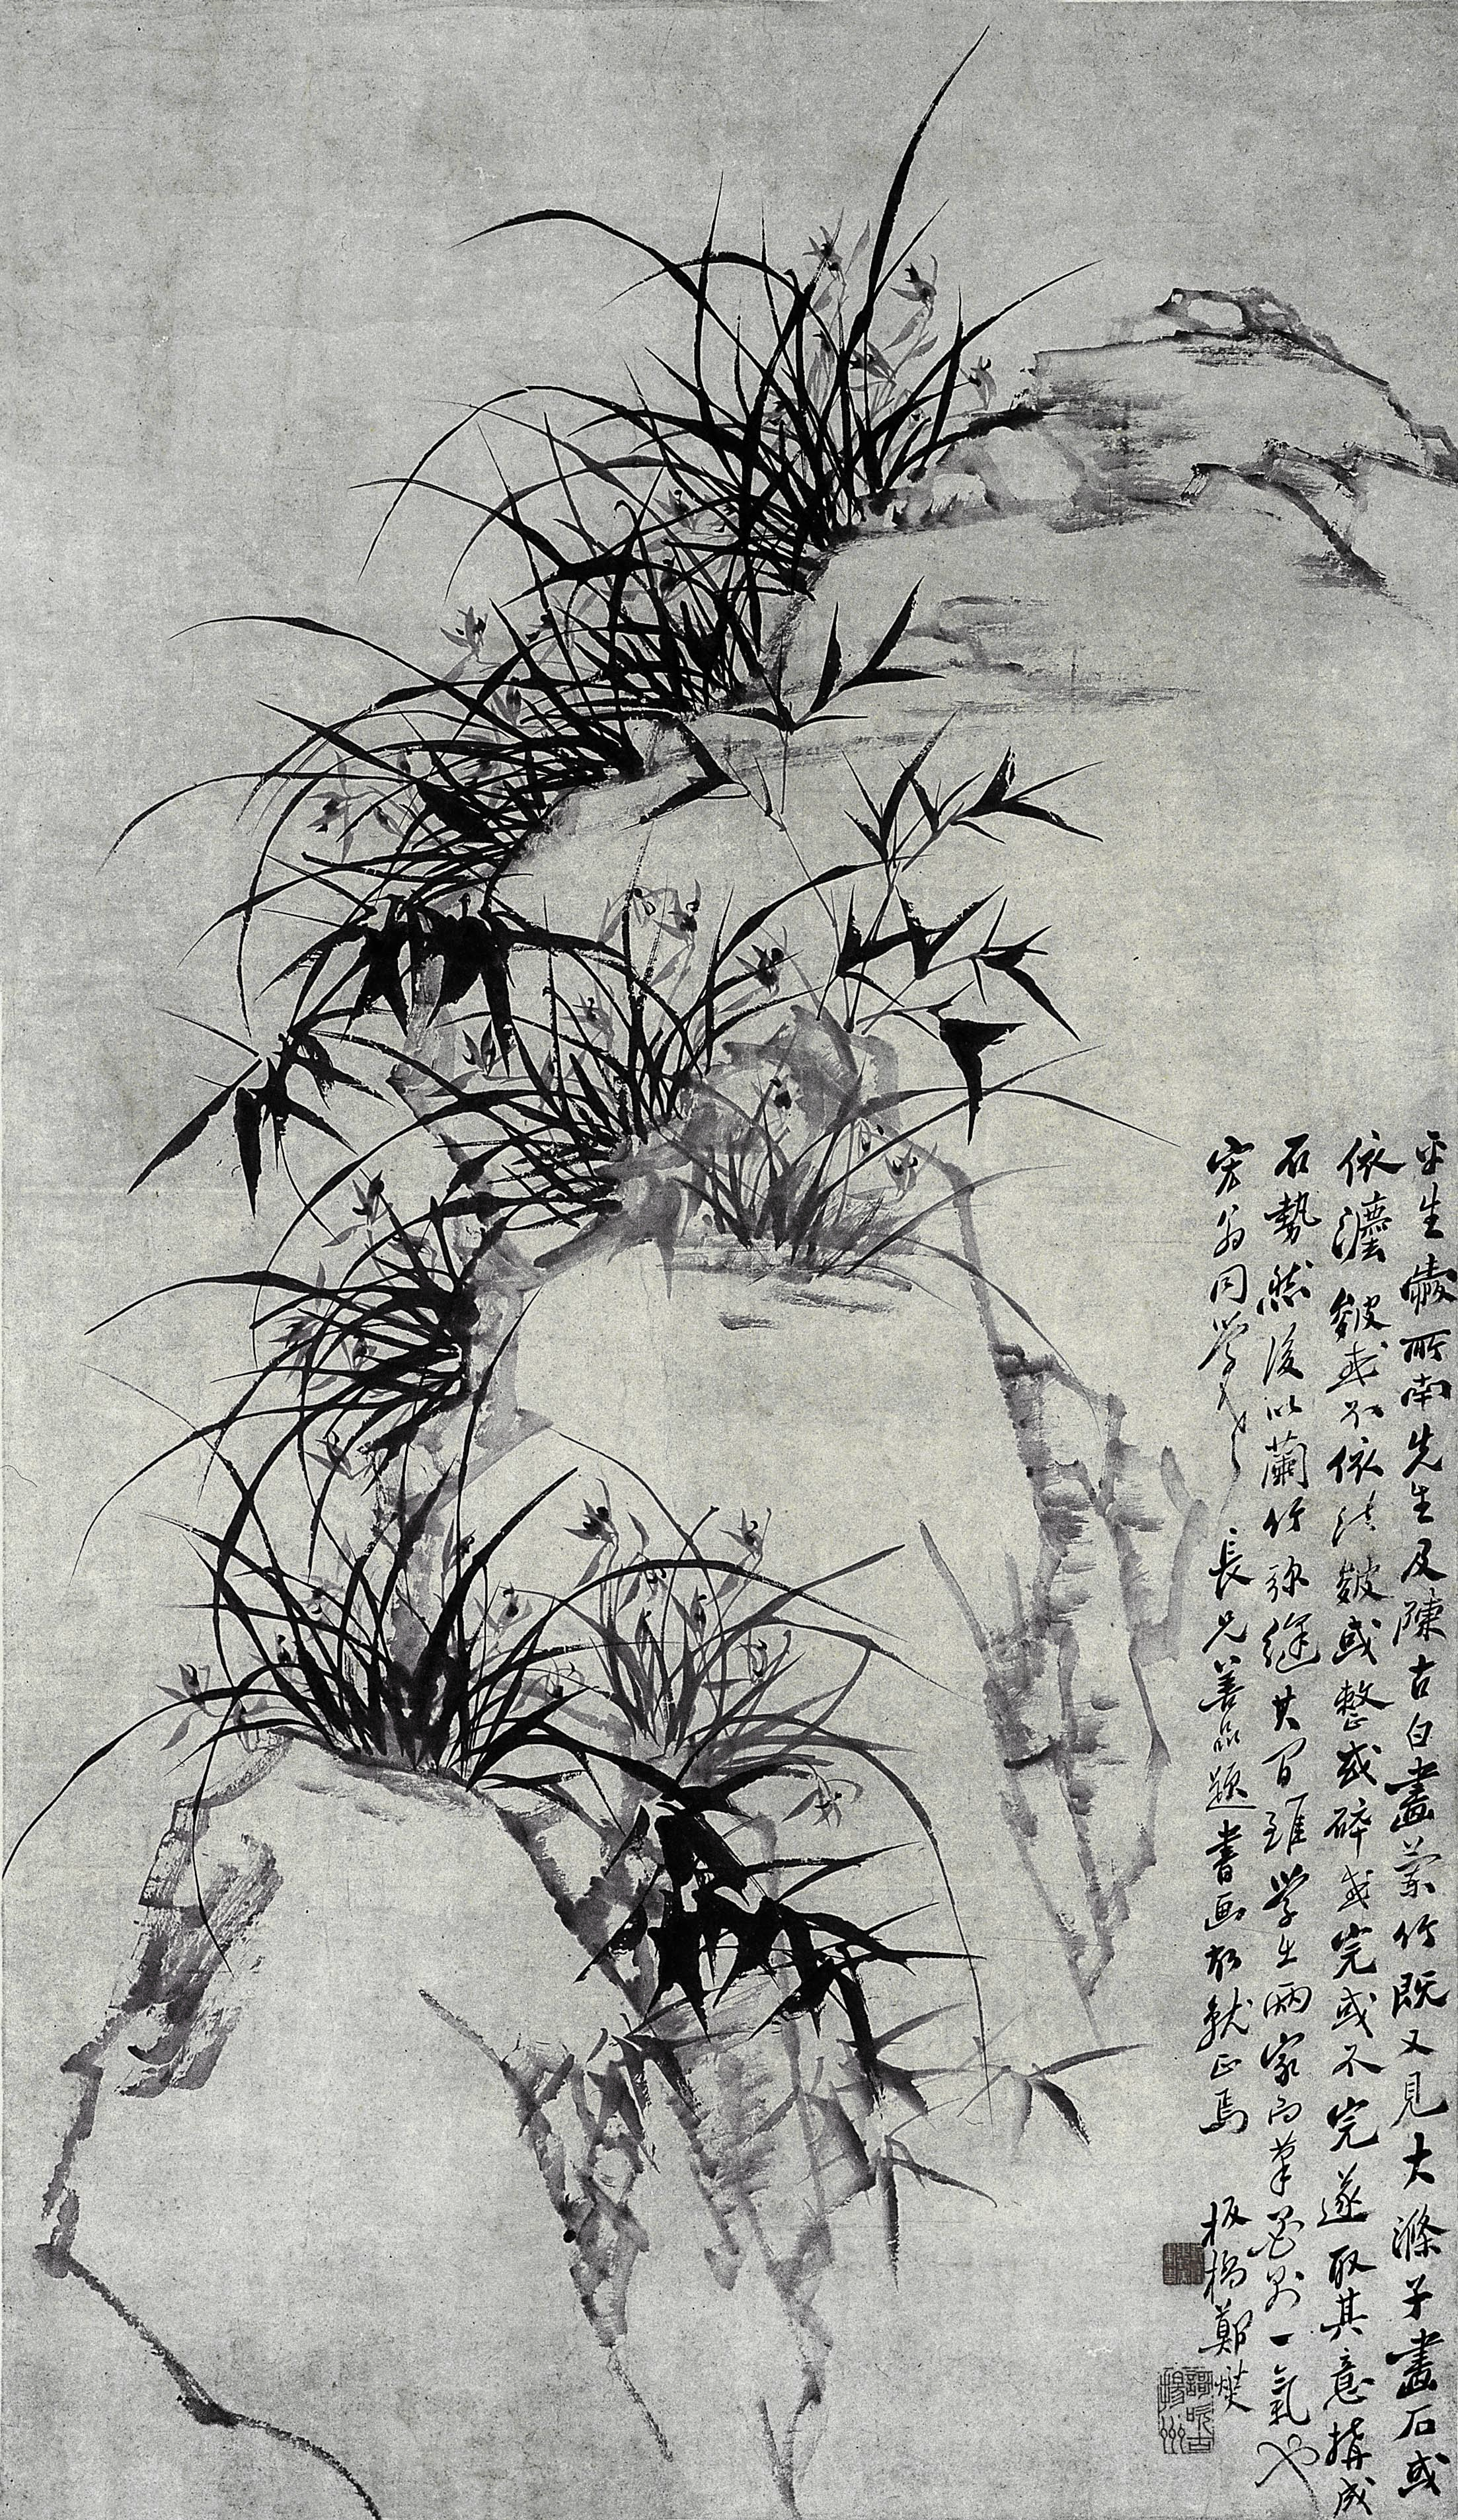 平生愛所南先生及陳古白畫蘭竹既又見大滌子畫石或
依法皴或不依法皴或整或碎或完或不完遂取其意搆成
石勢然後以蘭竹弥縫其間雖學出兩家而筆墨則一氣也
宏翁同學老長兄善品題書画故就正焉 板橋鄭燮
歌吹古揚州